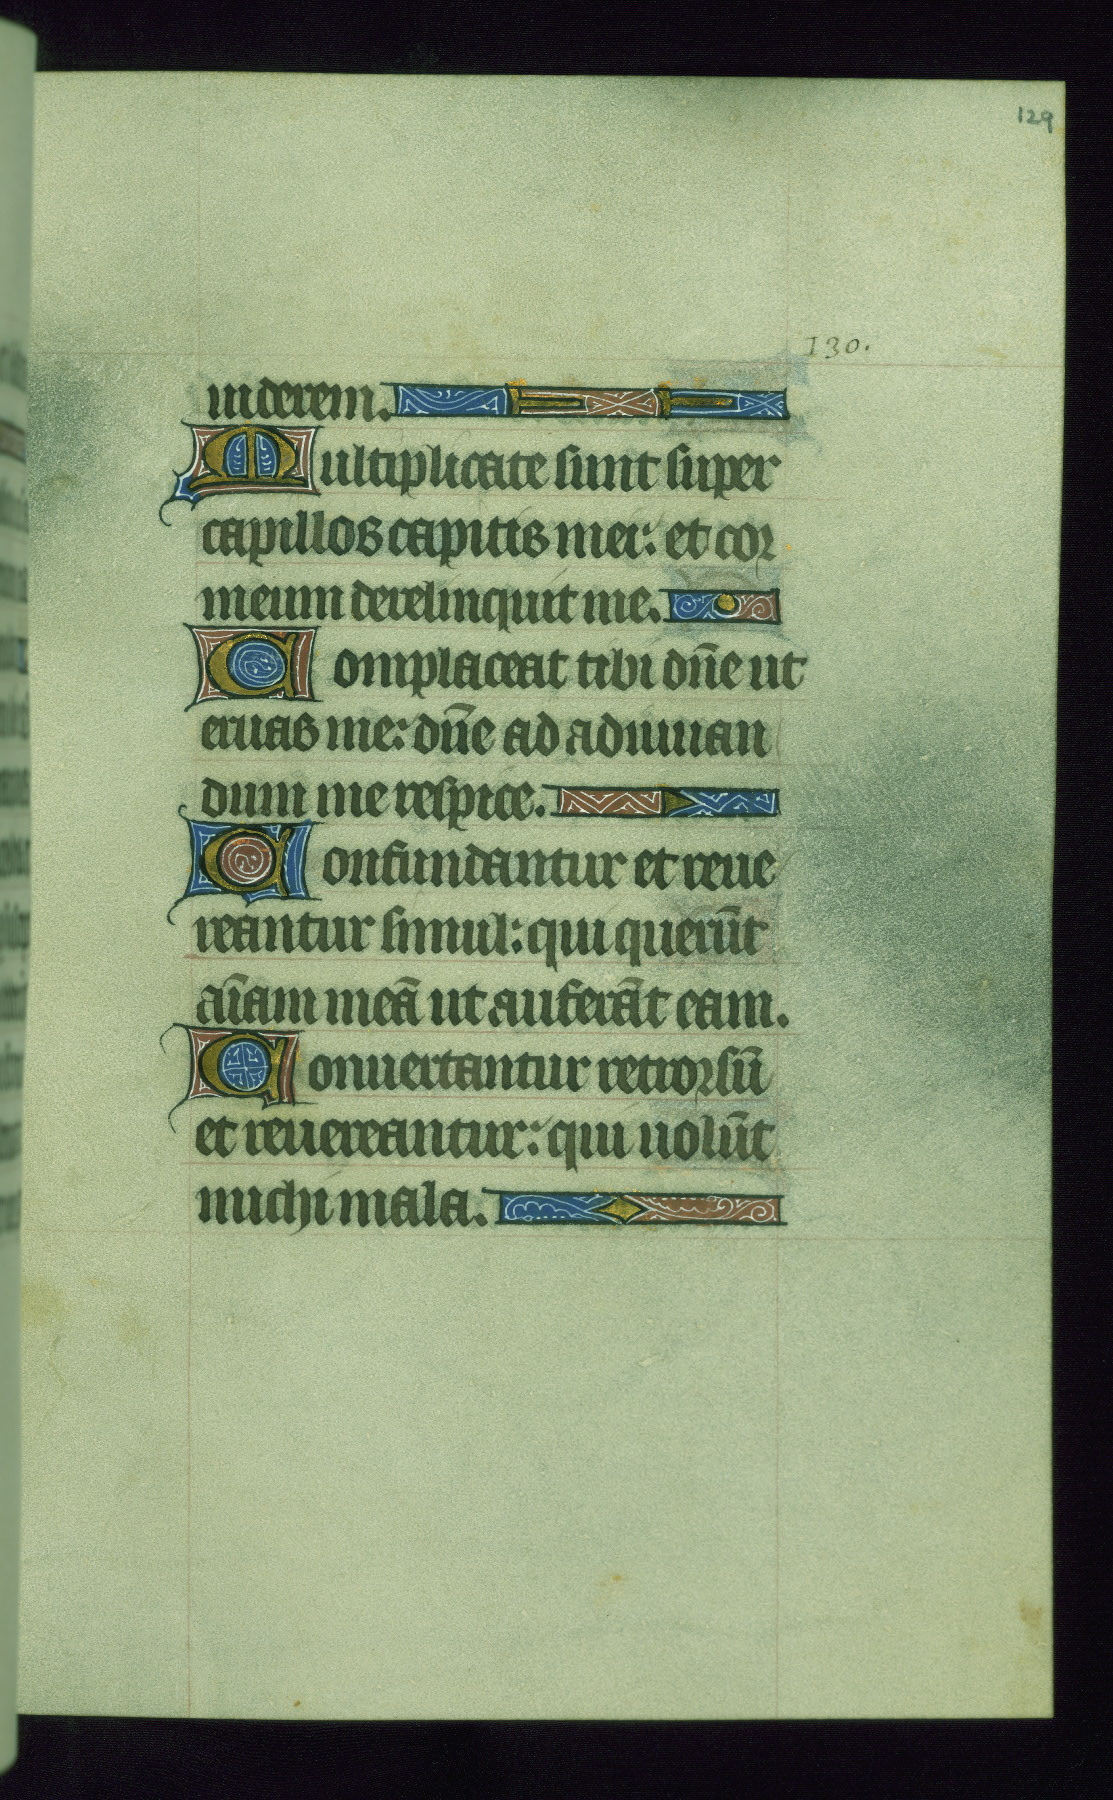 129
130.
uiderem.
Multiplicate sunt super
capillos capitis mei: et cor
meum derelinquit me.
Complaceat tibi dn̄e ut
eruas me: dn̄e ad adiuuan
dum me respice.
Confundantur et reue
reantur simul: qui querūt
aīam meā ut auferāt eam.
Conuertantur retrorsū
et reuereantur: qui uolūt
michi mala.